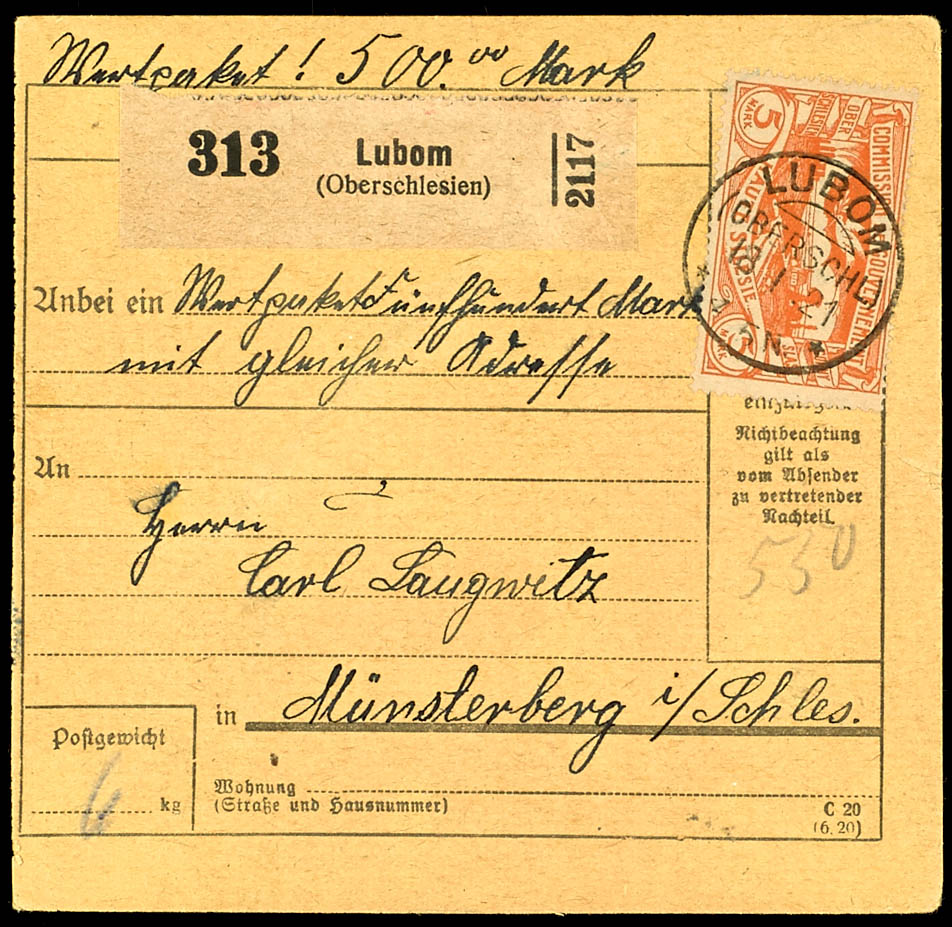 Wertpaket! 500.00 Mark
313 Lubom
(Oberschlesien)
2117
5 MARK
OBER
SCHLESIEN
COMMISSION GOUVERNEMENT
HAUTE SILESIE
LUBOM
(OBERSCHL.)
18.1.21
* 5N. *
Anbei ein Wertpaket Fünfhundert Mark
mit gleicher Adresse
Nichtbeachtung
gilt als
vom Absender
zu vertretender
Nachteil.
An
550
Herrn
Carl Langwitz
in Münsterberg i/Schles.
Postgewicht
6 kg
Wohnung
(Straße und Hausnummer)
C 20
(6. 20)